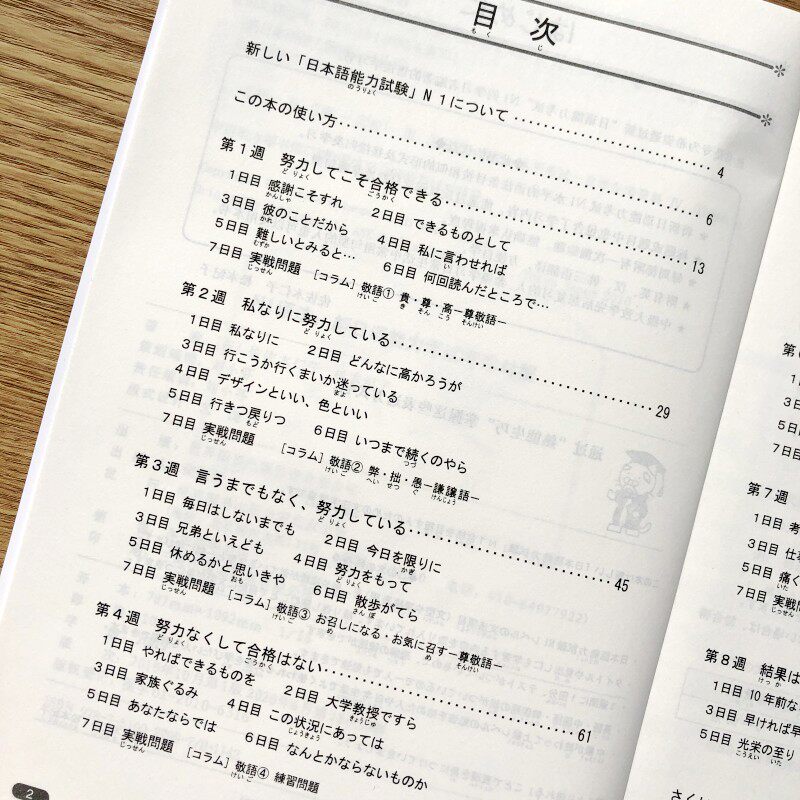 目次
新しい「日本語能力試験」N1について……4
この本の使い方……6
第1週 努力してこそ合格できる……13
1日目 感謝こそすれ 2日目 できるものとして
3日目 彼のことだから 4日目 私に言わせれば
5日目 難しいとみると… 6日目 何回読んだところで…
7日目 実戦問題 [コラム] 敬語① 貴・尊・高―尊敬語―
第2週 私なりに努力している……29
1日目 私なりに 2日目 どんなに高かろうが
3日目 行こうか行くまいか迷っている
4日目 デザインといい、色といい
5日目 行きつ戻りつ 6日目 いつまで続くのやら
7日目 実戦問題 [コラム] 敬語② 弊・拙・愚―謙譲語―
第3週 言うまでもなく、努力している……45
1日目 毎日はしないまでも 2日目 今日を限りに
3日目 兄弟といえども 4日目 努力をもって
5日目 休めるかと思いきや 6日目 散歩がてら
7日目 実戦問題 [コラム] 敬語③ お召しになる・お気に召す―尊敬語―
第4週 努力なくして合格はない……61
1日目 やればできるものを 2日目 大学教授ですら
3日目 家族ぐるみ 4日目 この状況にあっては
5日目 あなたならでは 6日目 なんとかならないものか
7日目 実戦問題 [コラム] 敬語④ 練習問題
2
1日
3日目
5日目
7日目
第7週
1日目 考
3日目 仕事
5日目 痛く
7日目 実戦
第8週 結果は
1日目 10年前な
3日目 早ければ早
5日目 光栄の至り
さくい